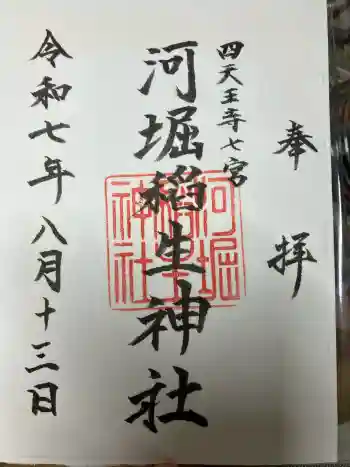 奉拝
四天王寺七宮
河堀稲生神社
河堀稲生神社
令和七年八月十三日